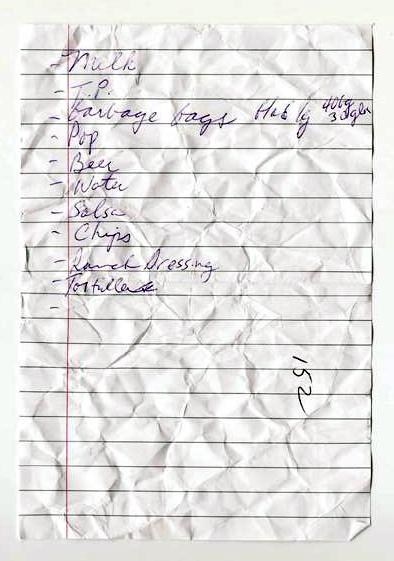 - Milk
- T.P.
- Garbage bags
- Pop
- Beer
- Water
- Salsa
- Chips
- Ranch Dressing
- Tortillas
-
152